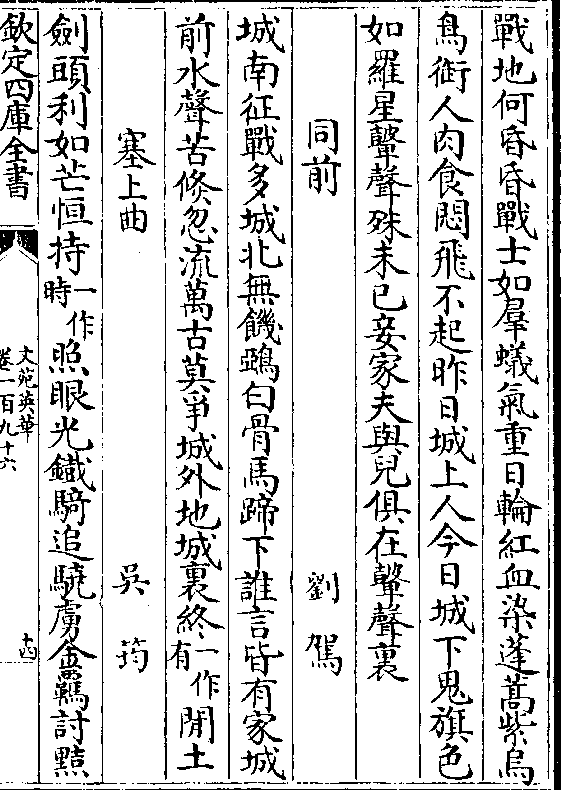 戰地何昏昏戰士如羣蟻氣重日輪紅血染蓬蒿紫烏
鳥銜人肉食悶飛不起昨日城上人今日城下鬼旗色
如羅星鼙聲殊未已妾家夫與兒俱在鼙聲裏
同前 劉駕
城南征戰多城北無饑鴉白骨馬蹄下誰言皆有家城
前水聲苦倐忽流萬古莫爭城外地城裏終一作有閒土
塞上曲 吳筠
劍頭利如芒恒持一作時照眼光鐵騎追驍虜金羈討黠
欽定四庫全書 文苑英華 卷一百九十六 十四